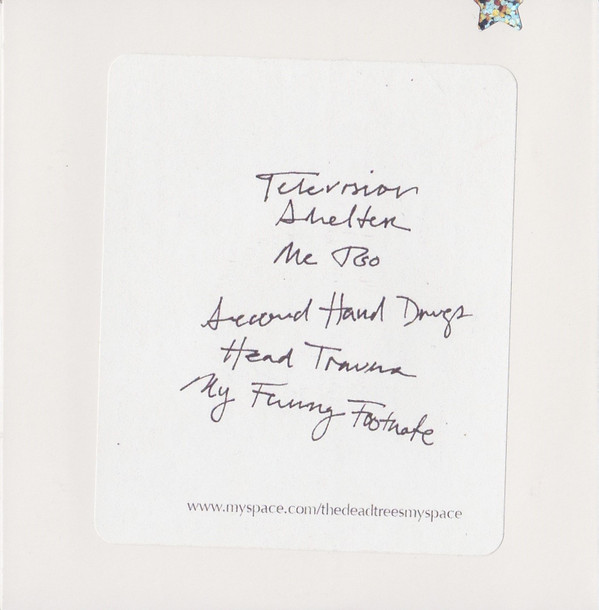 Television
Shelter
Me Too
Second Hand Drugs
Head Trauma
My Funny Footnote
www.myspace.com/thedeadtreesmyspace